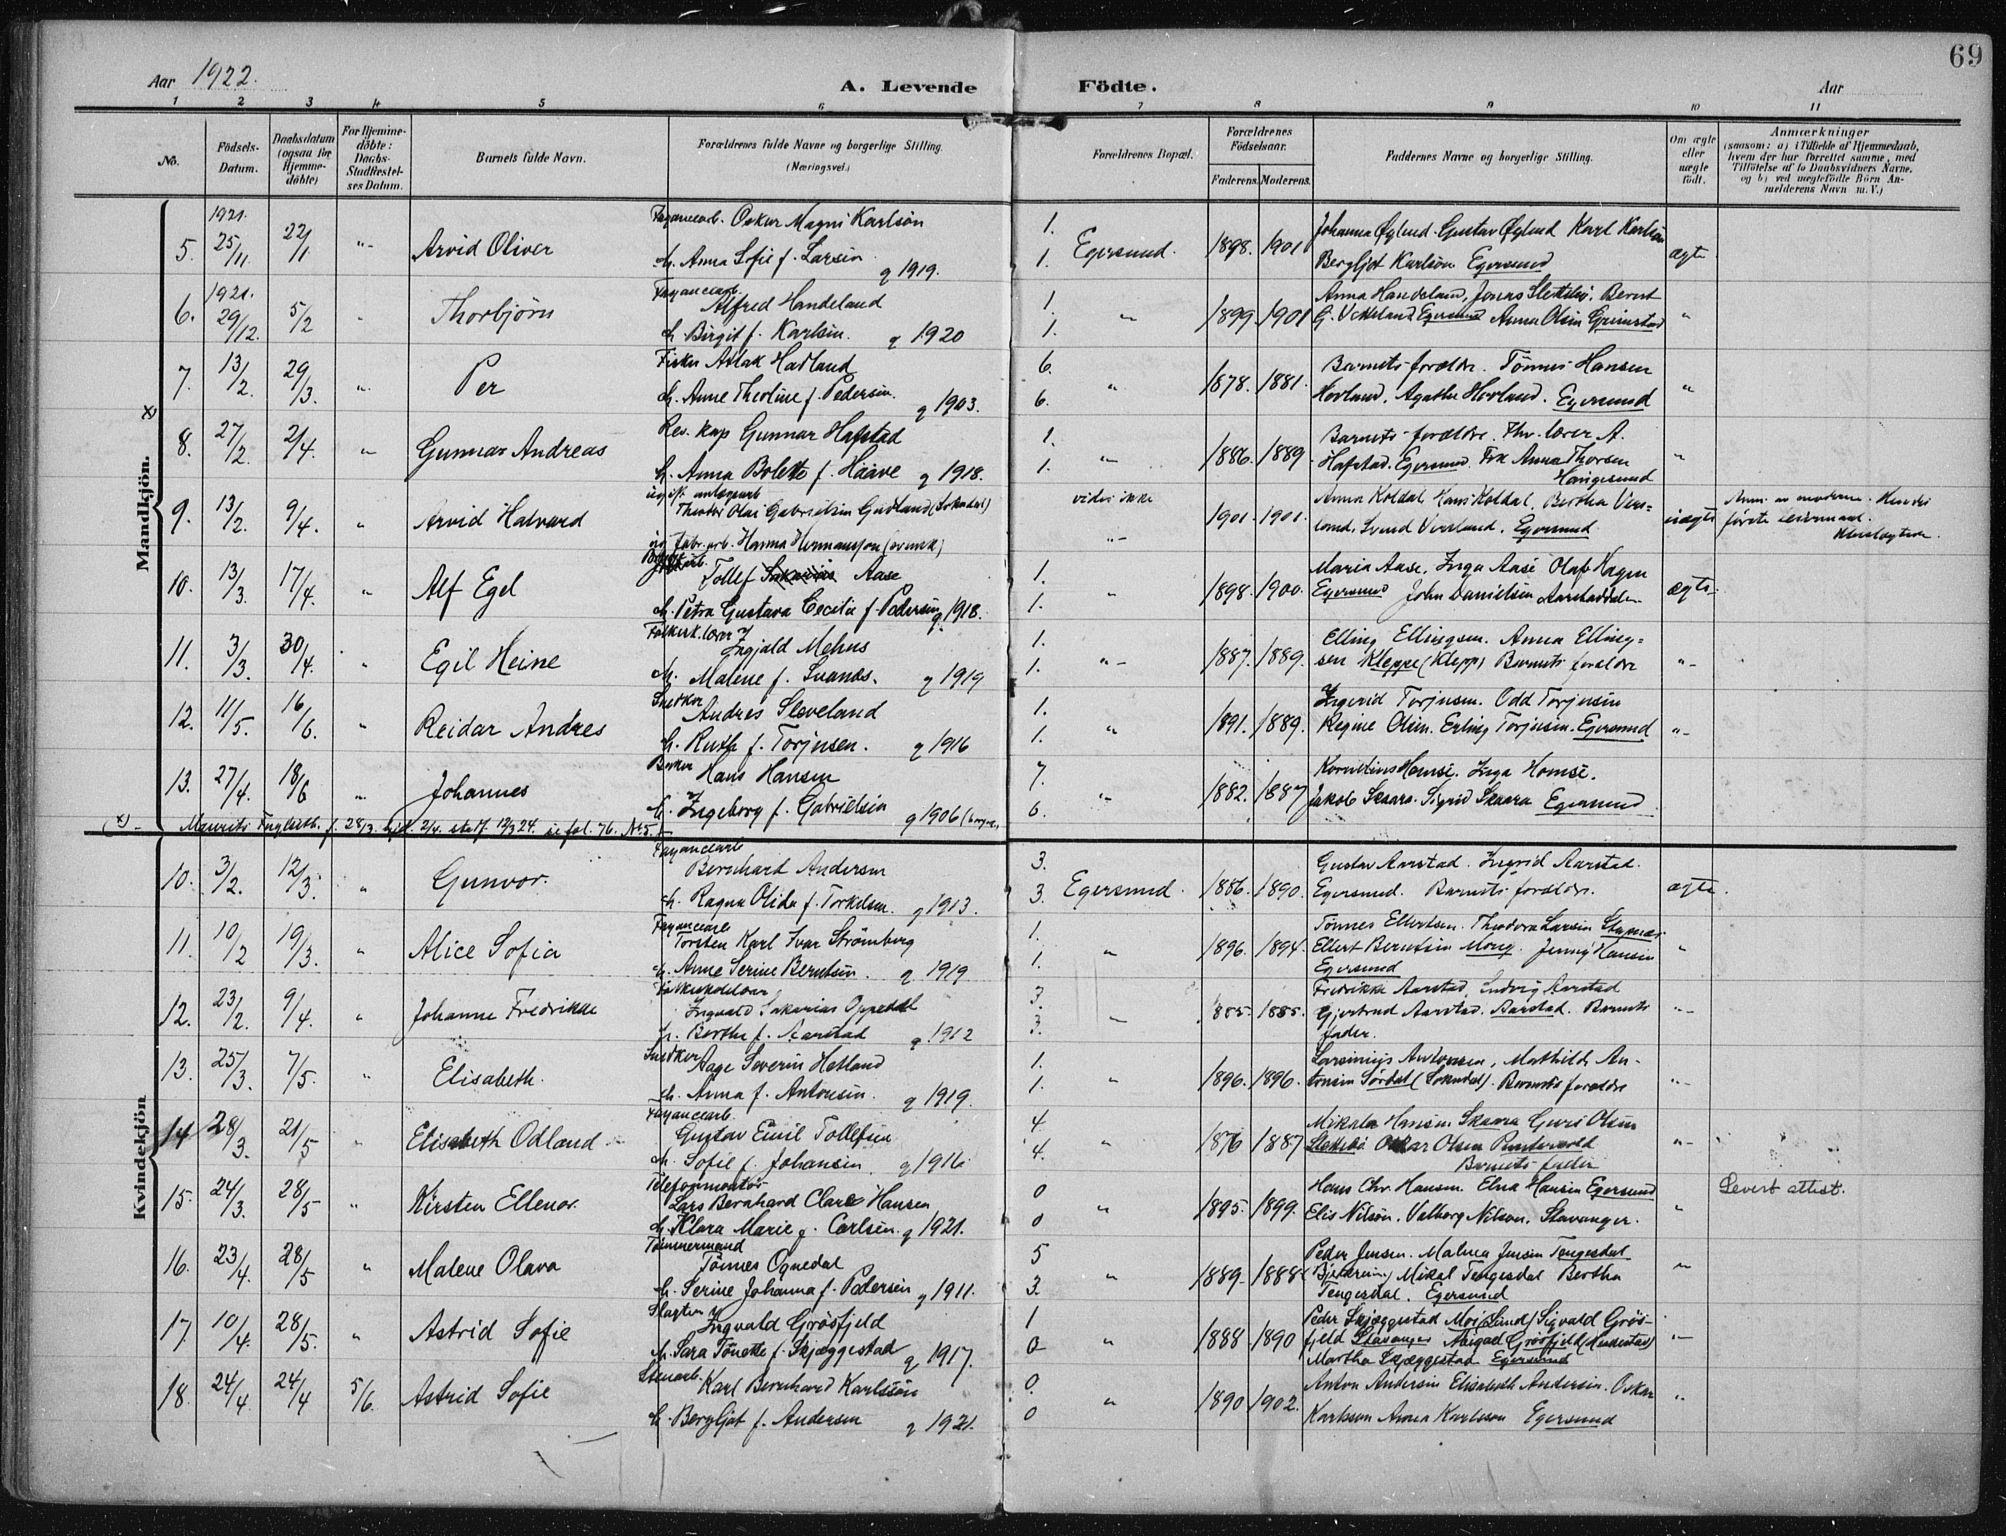 69
Aar 1922. A. Levende Födte. Aar
1 2 3 4 5 6 7 8 9 10 11
No. Födsels-Datum. Daabsdatum (ogsaa for Hjemme-döbte) For Hjemme-döbte: Daabs-Stadfæstel-ses Datum. Barnets fulde Navn. Forældrenes fulde Navne og borgerlige Stilling. (Næringsvei.) Forældrenes Bopæl. Forældrenes Födselsaar. Faderens. Moderens. Faddernes Navne og borgerlige Stilling. Om ægte eller uægte födt. Anmærkninger (saasom: a) i Tilfælde af Hjemmedaab, hvem der har forrettet samme, med Tilföielse af to Daabsvidners Navne. og b) ved uægtefödte Börn An-melderens Navn m. V.)
Mandkjön.
1921. Fayancearb. Oskar Magni Karlsön 1. Johanna Øglend. Gustav Øglend Karl Karlsön
5. 25/11 22/1 " Arvid Oliver H. Anna Sofie f. Larsen g 1919. 1. Egersund. 1898. 1901 Bergljot Karlsön Egersund ægte
1921. Fayancearb. Alfred Handeland 1. Anna Handeland, Jonas Slettebø. Berent
6. 29/12. 5/2 " Thorbjörn H. Birgit f. Karlsen. g 1920 1. " 1899. 1901 G. Veshland Egersund Anna Olsen Grimstad "
7. 13/2. 29/3. " Per Fisker Aslak Hadland 6. " 1878. 1881. Barnets forældre. Tönnes Hansen
H. Anne Theoline f. Pedersen. g 1903. 6. Hovland. Agathe Hovland. Egersund "
x)
8. 27/2. 2/4. " Gunnar Andreas Res. kap Gunnar Hafstad 1. Barnets forældre. Thv. lærer A.
H. Anna Bolette f. Haave g 1918. 1. " 1886. 1889. Hafstad. Egersund. Frk Anna Thorsen Haugesund "
9. 13/2. 9/4. " Arvid Halvard Theodor Olai Gabrielsen Gudland (Sokndal) vides ikke 1901. 1901. Anna Koldal Hans Koldal. Bertha Vers-
Hanna Hermansson (svensk) " land. Svend Versland. Egersund. uægte Anm. av moderen. Hendes første leiermaal.
10. 13/3. 17/4. " Alf Egel Tollef Sakarias Aase 1. Maria Aase. Inga Aase Olaf Hagen
H. Petra Gustava Cecilia f. Pedersen g 1918. 1. " 1898. 1900. Egersund John Danielsen Aarstaddalen ægte
11. 3/3. 30/4. " Egil Heine Folkesk.lærer Ingjald Mehus 1. Elling Ellingsen. Anna Elling=
H. Malene f. Svanes. g 1919 1. " 1887. 1889. sen Kleppe (Klepp) Barnets forældre "
12. 11/5. 16/6. " Reidar Andres Snedker Andres Sleveland 1. Ingerid Torjusen. Odd Torjusen
H. Ruth f. Torjusen. g 1916 1. " 1891. 1889. Regine Olsen. Erling Torjusen. Egersund "
13. 27/4. 18/6 " Johannes Hans Hansen 7. Kornelius Homse. Inga Homse.
H. Ingeborg f. Gabrielsen g 1906 6. " 1882. 1887 Jakob Skaara. Sigrid Skaara Egersund
(x) Maurits f. 28/3. 2/4. 12/3 24. se fol. 76. No 5.
Kvindekjön
10. 3/2. 12/3. " Gunvor. Fayancearb Bernhard Andersen 3. Gustav Aarstad. Ingrid Aarstad.
H. Ragna Olida f. Torkelsen. g 1913. 3. Egersund. 1886. 1890. Egersund. Barnets forældre. ægte.
11. 10/2 19/3. " Alice Sofia Fayancearb Torsten Karl Ivar Strömberg 1. Tönnes Ellertsen. Theodora Larsen Stapnes
H. Anne Serine Berntsen. g 1919 1. " 1896. 1894. Ellert Berntsen Mong. Jenny Hansen Egersund "
12. 23/2. 9/4. " Johanne Fredrikke Folkeskolelærer Ingvald Sakarias Oppedal 3. Fredrikke Aarstad, Ludvig Aarstad
H. Bertha f. Aarstad g 1912 3. " 1885. 1885. Gjertrud Aarstad. Aarstad. Barnets fader. "
13. 25/3. 7/5. " Elisabeth. Snedker Aage Severin Hetland 1. Larsinius Antonsen, Mathilde An-
H. Anna f. Antonsen. g 1919. 1. " 1896. 1896. tonsen Sördal (Sokndal). Barnets forældre "
14 28/3. 21/5 " Elisabeth Odland Fayancearb. Gustav Emil Tollefsen 4 Mikala Hansen Skaara Guri Olsen
H. Sofie f. Johansen. g 1916 4. " 1876 1887 Slettebø Oskar Olsen Puntervold Barnets fader "
15. 24/3. 28/5 " Kirsten Ellenor. Telefonmontör Lars Bernhard Clare Hansen 0 Hans Chr. Hansen. Elna Hansen Egersund
H. Klara Marie f. Carlsen. g 1921. 0 " 1895. 1899. Elis Nilsön. Valborg Nilsön. Stavanger. " Levert attest.
16. 23/4. 28/5 " Malene Olava Tömmermand Tönnes Ognedal 5 Peder Jensen. Malena Jensen Tengesdal
H. Serine Johanna f. Pedersen g 1911. 3. " 1889. 1888 (Bjerkreim) Mikal Tengesdal Bertha Tengesdal. Egersund "
17. 10/4. 28/5. " Astrid Sofie Slagter Ingvald Grösfjeld 1 Peder Skjæggestad Moi (Lund) Sigvald Grös-
H. Sara Tönette f. Skjæggestad g 1917. 0 " 1888 1890 fjeld Stavanger Abigael Grösfjeld Martha Skjæggestad Egersund "
18. 24/4. 24/4 5/6. Astrid Sofie Stenarb. Karl Bernhard Karlsson 0. Anton Andersen Elisabeth Andersen. Oskar
H. Bergljot f. Andersen g 1921. 0 " 1890 1902. Karlsson Anna Karlsson Egersund "